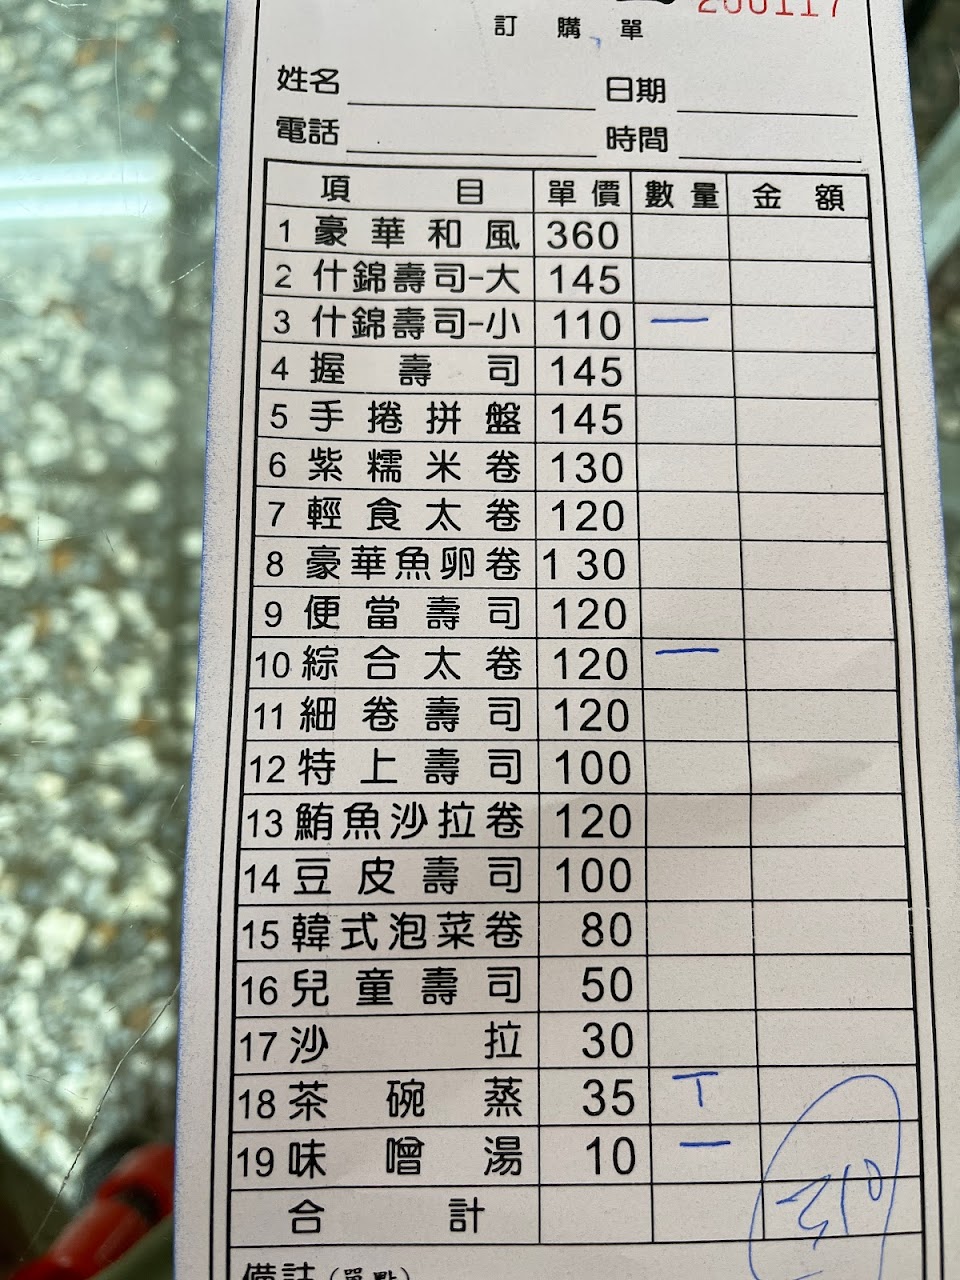 200117
訂購單
姓名 日期
電話 時間
項目 單價 數量 金額
1 豪華和風 360
2 什錦壽司-大 145
3 什錦壽司-小 110 一
4 握壽司 145
5 手捲拼盤 145
6 紫糯米卷 130
7 輕食太卷 120
8 豪華魚卵卷 130
9 便當壽司 120
10 綜合太卷 120 一
11 細卷壽司 120
12 特上壽司 100
13 鮪魚沙拉卷 120
14 豆皮壽司 100
15 韓式泡菜卷 80
16 兒童壽司 50
17 沙拉 30
18 茶碗蒸 35 T
19 味噌湯 10 一
合計 310
備註(單點)